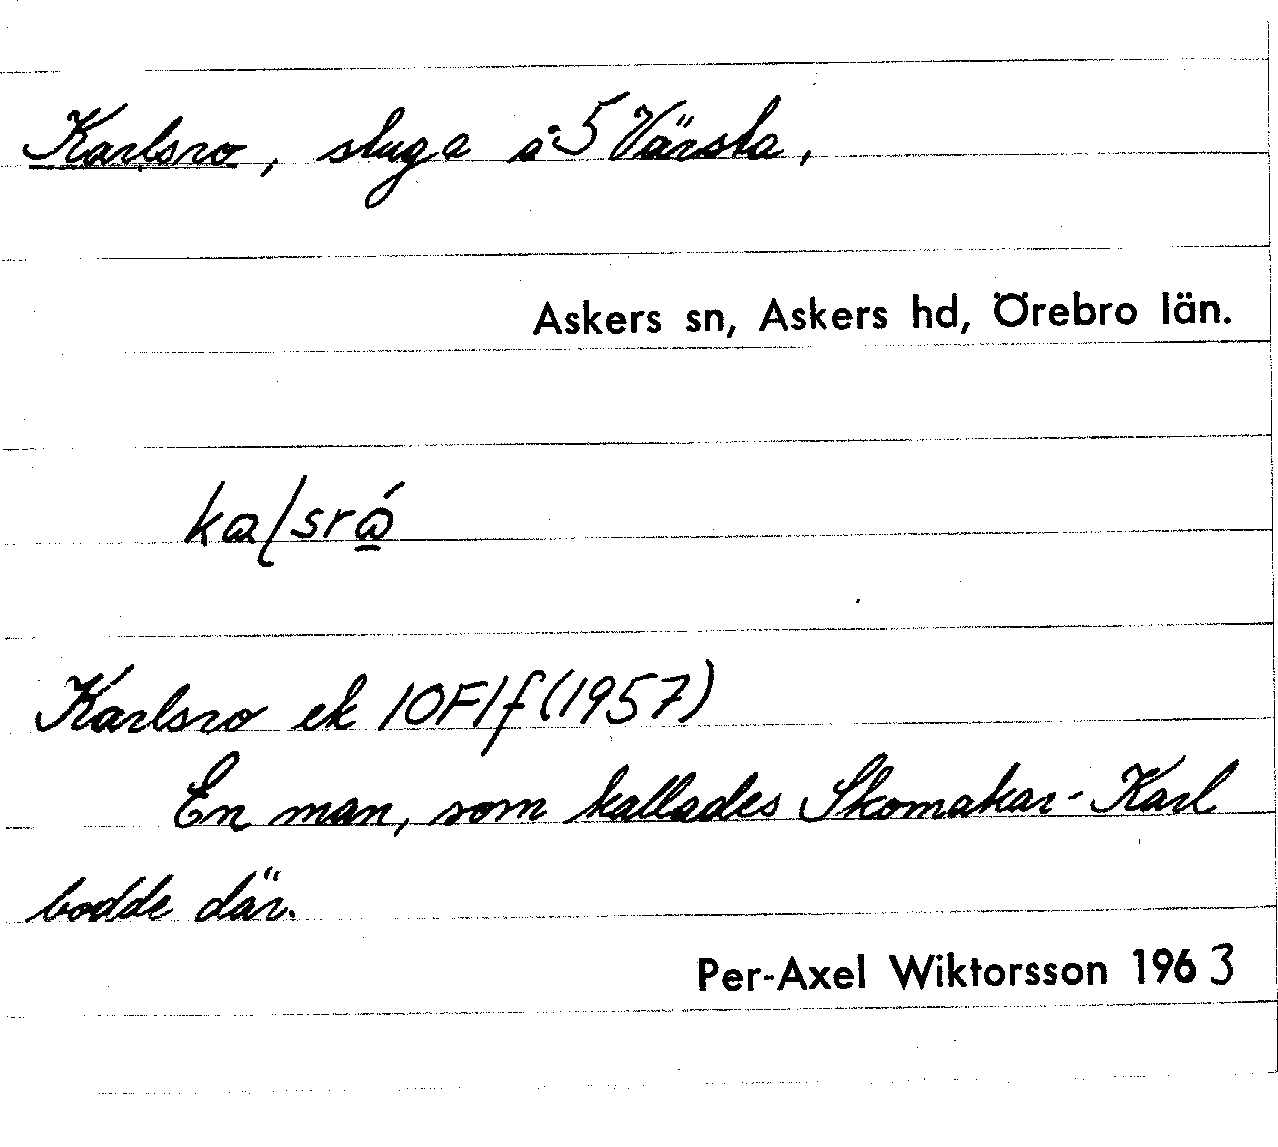 Karlsro, stuga å 5 Värsta,
Askers sn, Askers hd, Örebro län.
Karlsro ek 10F1f (1957)
En man, som kallades Skomakar-Karl
bodde där.
Per-Axel Wiktorsson 1963